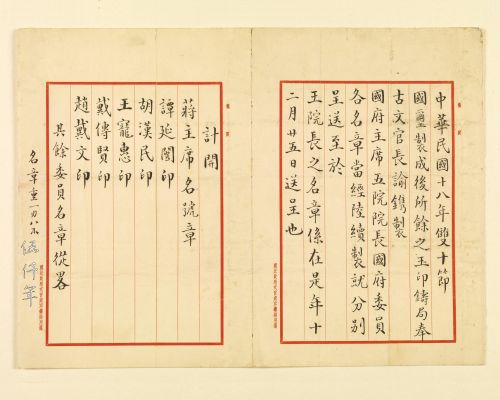 中華民國十八年雙十節
國璽製成後所餘之玉印鑄局奉
古文官長諭鐫製
國府主席五院院長國府委員
各名章當經陸續製就分別
呈送至於
王院長之名章係在是年十
二月廿五日送呈也
計開
蔣主席名號章
譚延闓印
胡漢民印
王寵惠印
戴傳賢印
趙戴文印
其餘委員名章從畧